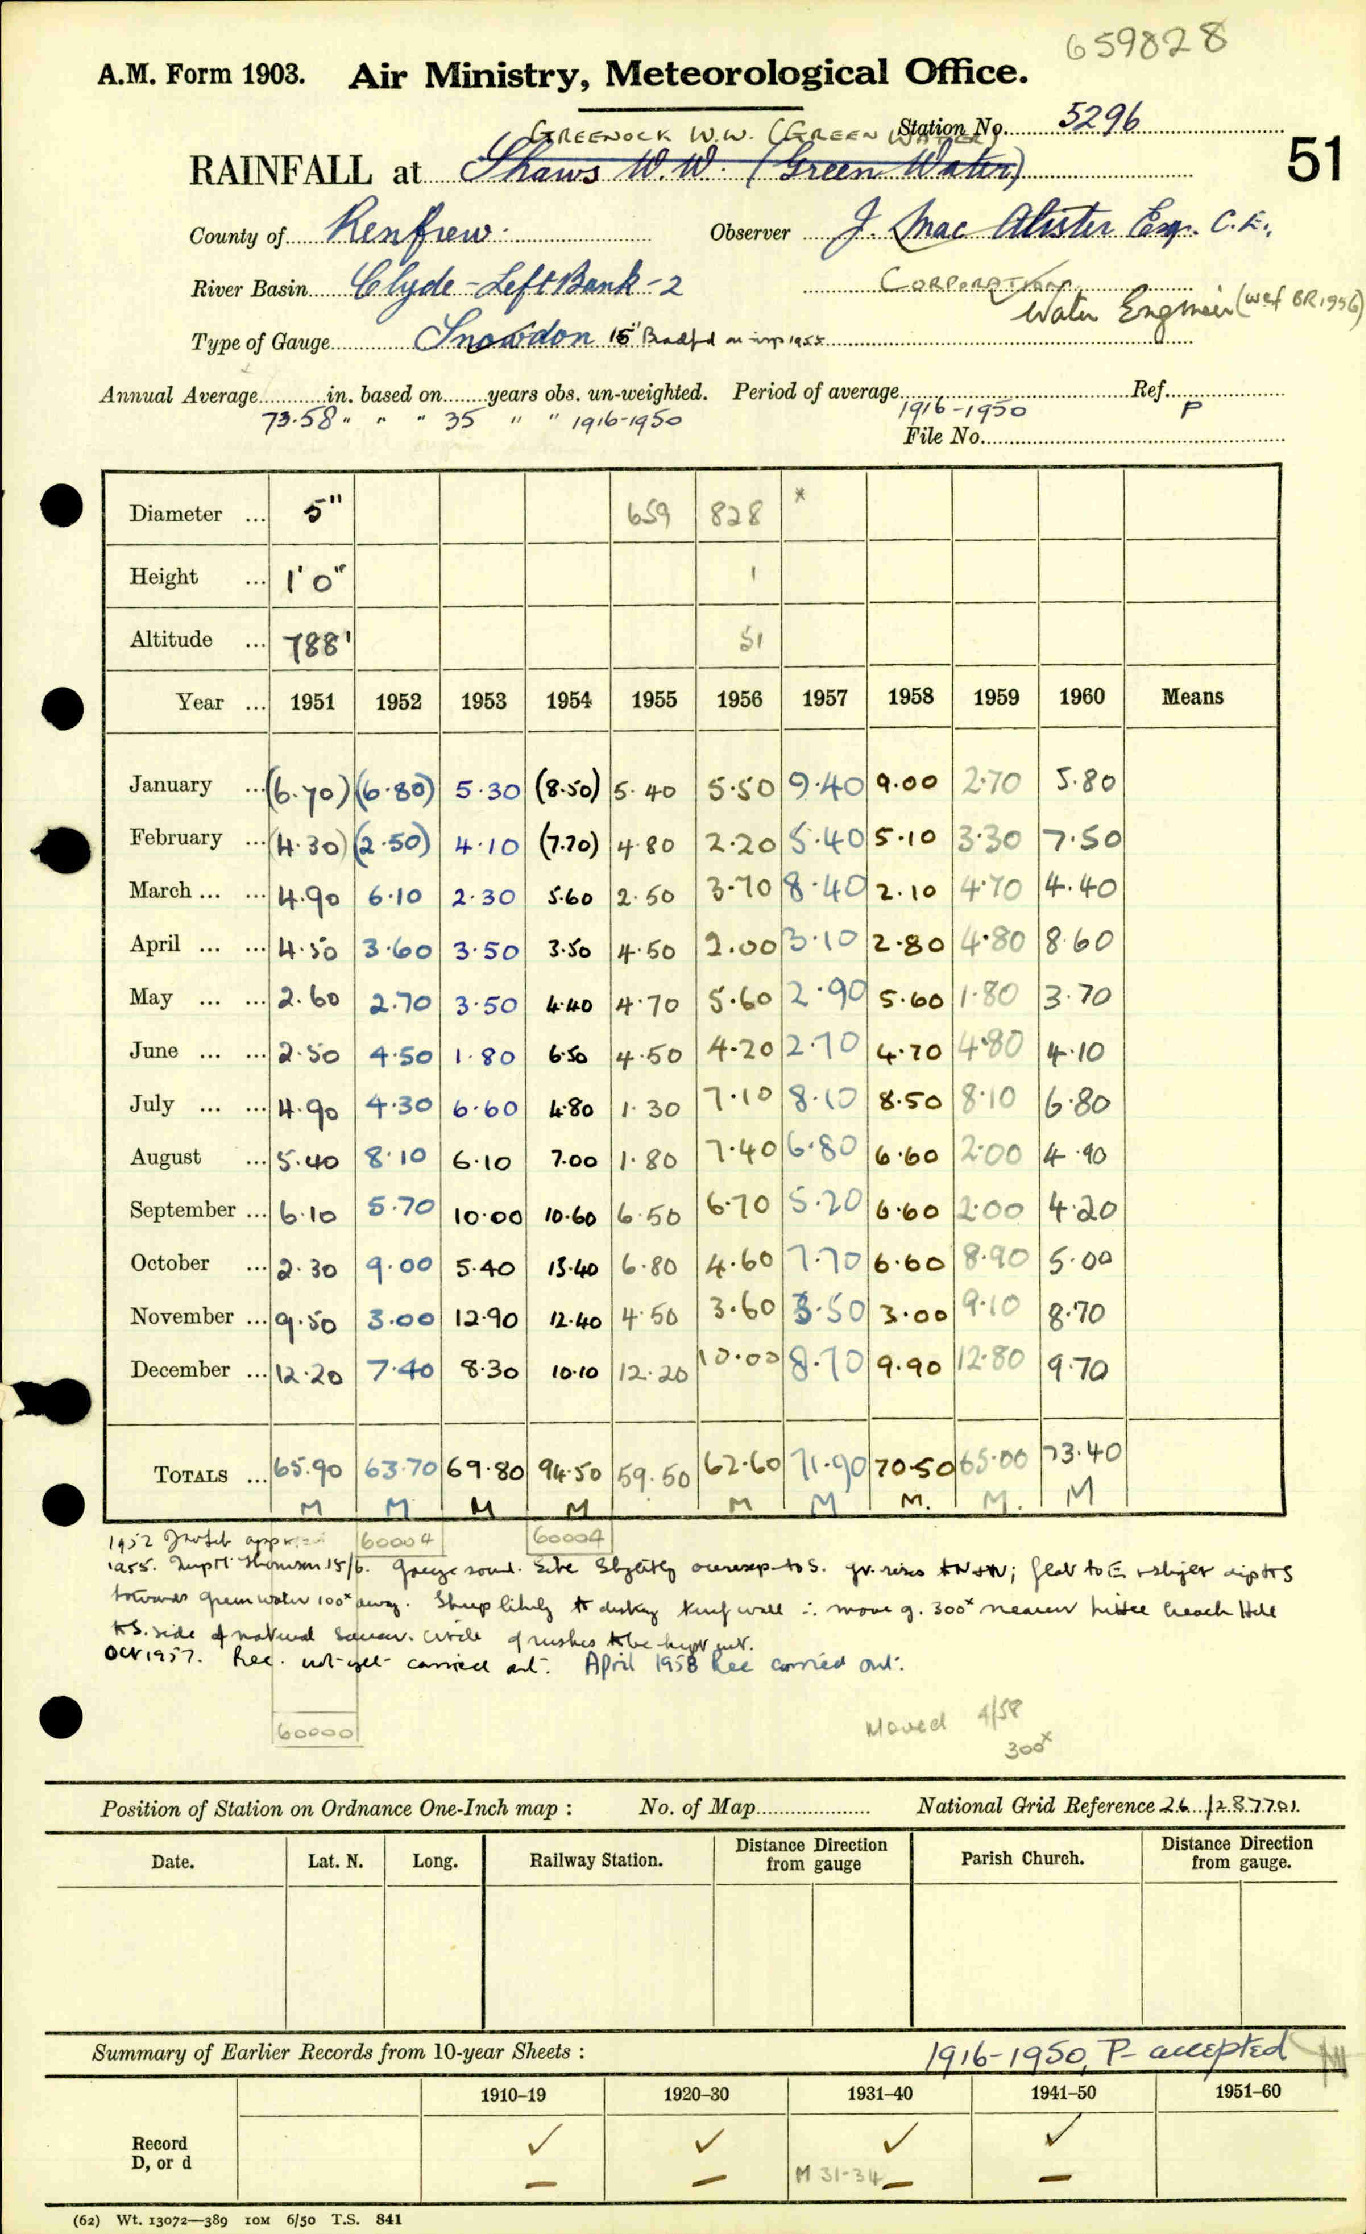 659828
A.M. Form 1903. Air Ministry, Meteorological Office.
Station No. 5296
GREENOCK W.W. (GREEN WATER)
RAINFALL at Shaws W.W. (Green Water)
51
County of Renfrew. Observer J. Mac Alister Esq. C.E.
River Basin Clyde - Left Bank - 2 CORPORATION
Water Engineer (wef BR 1956)
Type of Gauge Snowdon 15" Bradfd on insp 1955
Annual Average in. based on years obs. un-weighted. Period of average Ref.
73.58 " " " 35 " " 1916-1950 1916-1950 P
File No.
Diameter ... 5" 659 828 *
Height ... 1' 0" 1
Altitude ... 788' 51
Year ... 1951 1952 1953 1954 1955 1956 1957 1958 1959 1960 Means
January ... (6.70) (6.80) 5.30 (8.50) 5.40 5.50 9.40 9.00 2.70 5.80
February ... (4.30) (2.50) 4.10 (7.70) 4.80 2.20 5.40 5.10 3.30 7.50
March ... ... 4.90 6.10 2.30 5.60 2.50 3.70 8.40 2.10 4.70 4.40
April ... ... 4.50 3.60 3.50 3.50 4.50 2.00 3.10 2.80 4.80 8.60
May ... ... 2.60 2.70 3.50 4.40 4.70 5.60 2.90 5.60 1.80 3.70
June ... ... 2.50 4.50 1.80 6.50 4.50 4.20 2.70 4.70 4.80 4.10
July ... ... 4.90 4.30 6.60 4.80 1.30 7.10 8.10 8.50 8.10 6.80
August ... 5.40 8.10 6.10 7.00 1.80 7.40 6.80 6.60 2.00 4.90
September ... 6.10 5.70 10.00 10.60 6.50 6.70 5.20 6.60 2.00 4.20
October ... 2.30 9.00 5.40 13.40 6.80 4.60 7.70 6.60 8.90 5.00
November ... 9.50 3.00 12.90 12.40 4.50 3.60 3.50 3.00 9.10 8.70
December ... 12.20 7.40 8.30 10.10 12.20 10.00 8.70 9.90 12.80 9.70
TOTALS ... 65.90 63.70 69.80 94.50 59.50 62.60 71.90 70.50 65.00 73.40
M M M M M M M. M. M
1952 Jan Feb 60004 60004
1955. Insp Mr Thomson 15/6. Gauge sound. Site slightly overexp. to S. gr. rises to N & W; flat to E & slight dip to S
towards green water 100x away. Sheep likely to destroy turf wall ∴ move g. 300x nearer Little Creach Hill
to S. side of natural circle of rushes to be kept cut.
Oct 1957. Rec. not yet carried out. April 1958 Rec carried out.
60000
Moved 4/58
300x
Position of Station on Ordnance One-Inch map : No. of Map National Grid Reference 26/287701
Date. Lat. N. Long. Railway Station. Distance Direction from gauge Parish Church. Distance Direction from gauge.
Summary of Earlier Records from 10-year Sheets : 1916-1950, P- accepted
1910–19 1920–30 1931–40 1941–50 1951–60
Record ✓ ✓ ✓ ✓
D, or d – – M 31-34 – –
(62) Wt. 13072—389 10M 6/50 T.S. 841